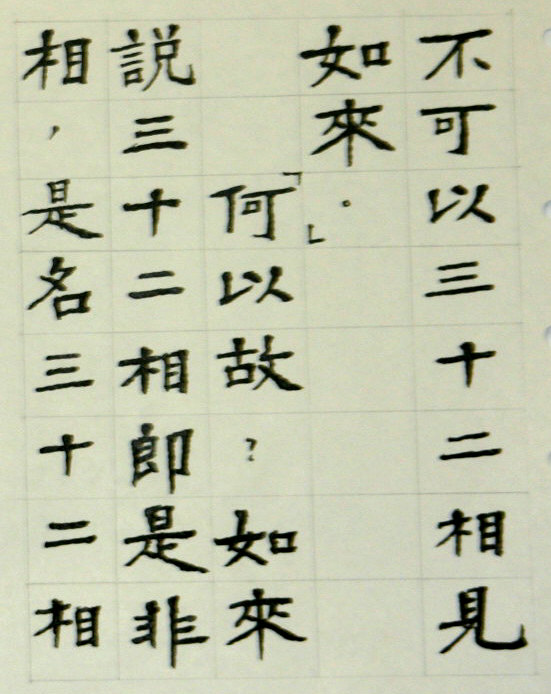 不可以三十二相見
如來．」
「何以故？如來
説三十二相即是非
相，是名三十二相